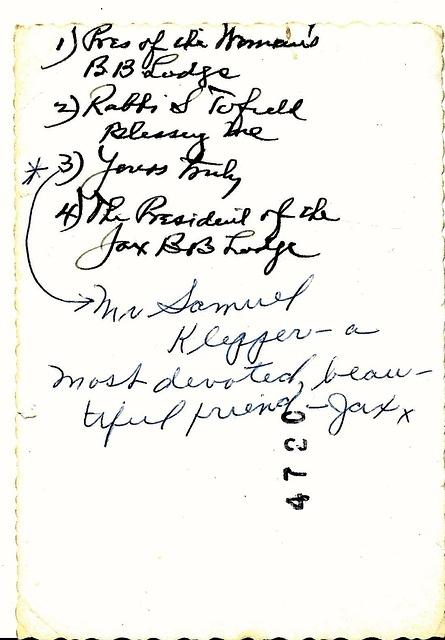 1) Pres of the Woman's
BB Lodge
2) Rabbi S Tofield
Blessing me
* 3) Yours truly
4) The President of the
Jax BB Lodge
Mr Samuel
Klepper - a
most devoted, beau-
tiful friend - Jax x
4720